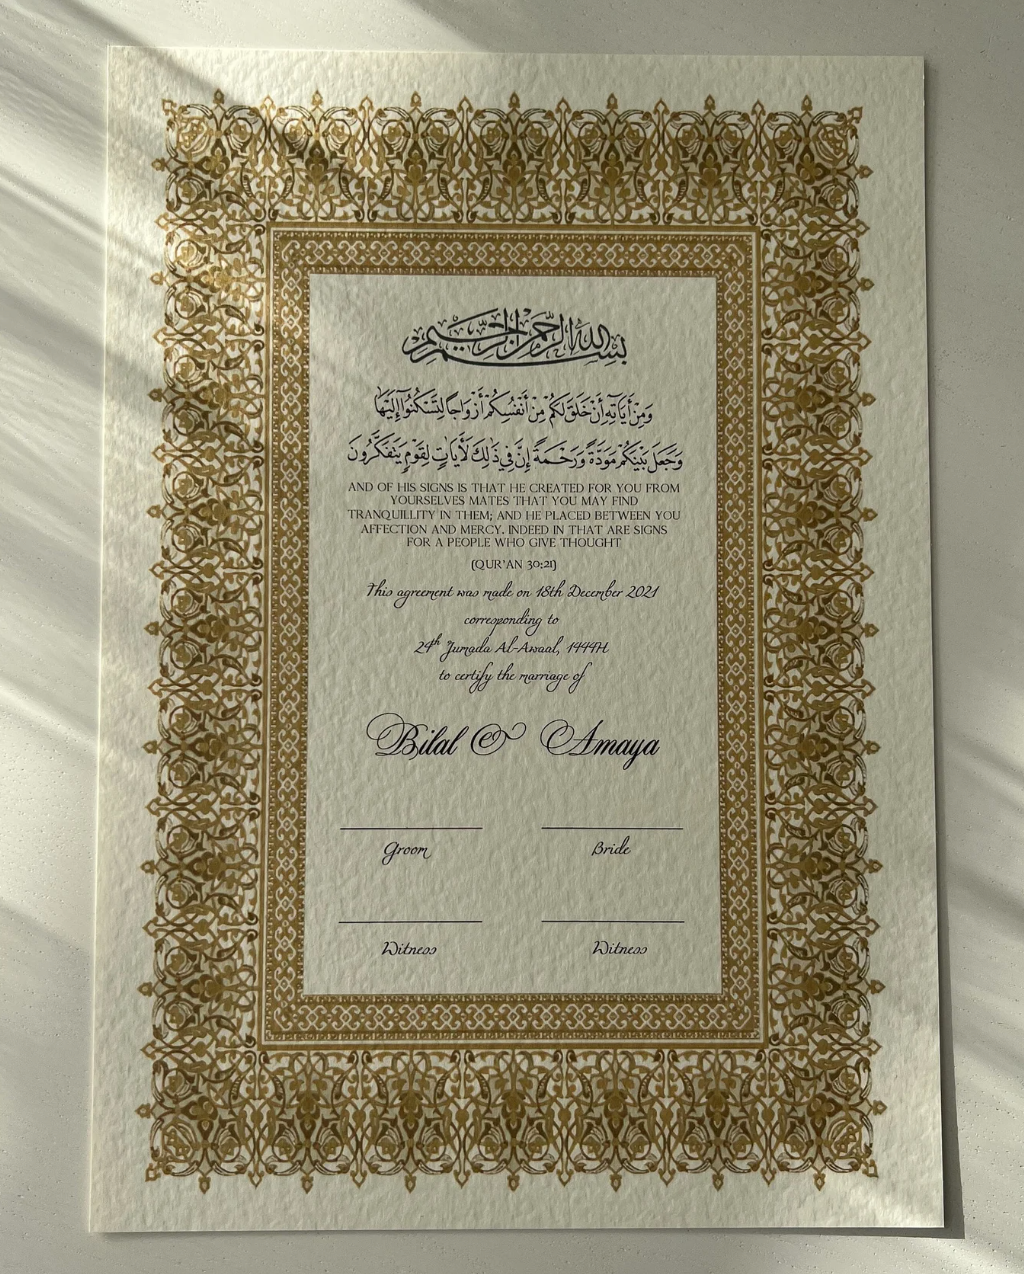 بسم الله الرحمن الرحيم
وَمِنْ أَيَاتِهِ أَنْ خَلَقَ لَكُمْ مِنْ أَنْفُسِكُمْ أَزْوَاجًا لِتَسْكُنُوا إِلَيْهَا
وَجَعَلَ بَيْنَكُمْ مَوَدَّةً وَرَحْمَةً إِنَّ فِي ذَلِكَ لَأَيَاتٍ لِقَوْمٍ يَتَفَكَّرُونَ
AND OF HIS SIGNS IS THAT HE CREATED FOR YOU FROM
YOURSELVES MATES THAT YOU MAY FIND
TRANQUILLITY IN THEM; AND HE PLACED BETWEEN YOU
AFFECTION AND MERCY. INDEED IN THAT ARE SIGNS
FOR A PEOPLE WHO GIVE THOUGHT
(QUR'AN 30:21)
This agreement was made on 18th December 2021
corresponding to
24th Jumada Al-Awaal, 1444H
to certify the marriage of
Bilal & Amaya
Groom Bride
Witness Witness